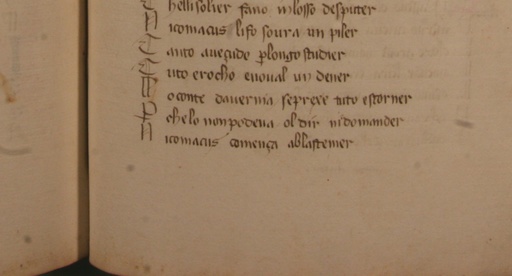 hellisolier fano inlosso desputer
N icomacus lifo soura un piler
T anto aueçude p longo studier
T uto erocho enoual un dener
M o conte dauernia se prexe tuto estorner
P che lo non podeua ol dir ni domander
N icomacus comença ablastemer